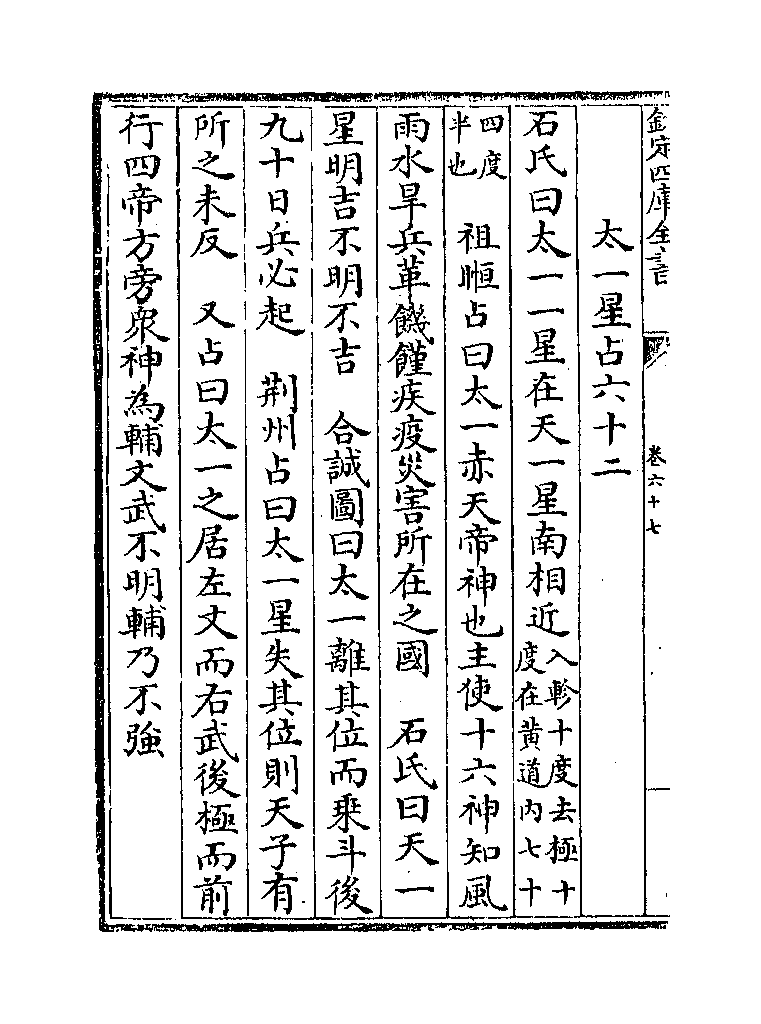 欽定四庫全書
卷六十七
太一星占六十二
石氏曰太一一星在天一星南相近入軫十度去極十度在黃道內七十
四度半也　祖暅占曰太一赤天帝神也主使十六神知風
雨水旱兵革饑饉疾疫災害所在之國　石氏曰天一
星明吉不明不吉　合誠圖曰太一離其位而乗斗後
九十日兵必起　荆州占曰太一星失其位則天子有
所之未反　又占曰太一之居左文而右武後極而前
行四帝方旁衆神為輔文武不明輔乃不強